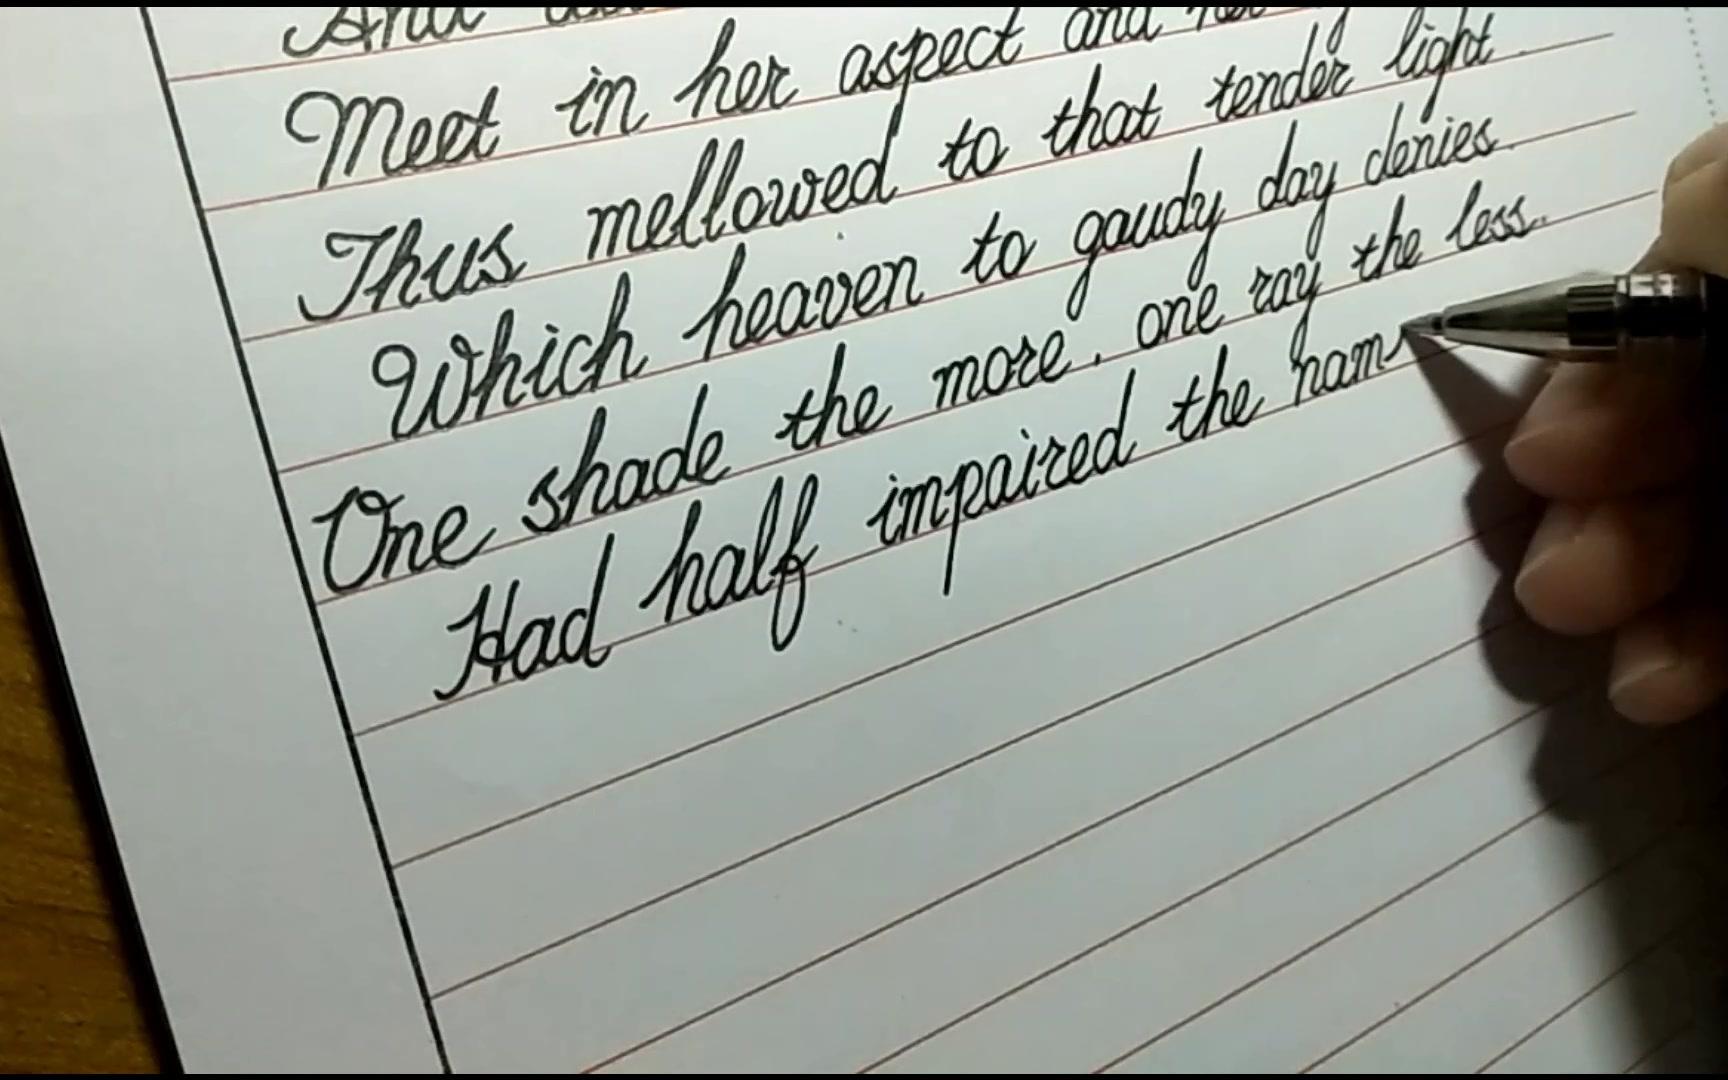 And
Meet in her aspect and her
Thus mellowed to that tender light
Which heaven to gaudy day denies.
One shade the more. one ray the less.
Had half impaired the nam